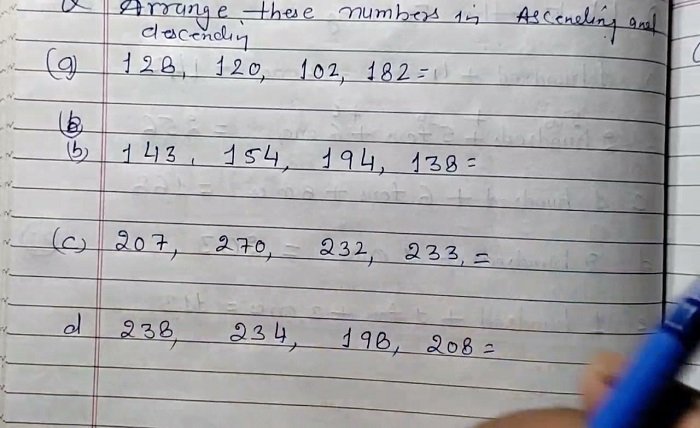 Q Arrange these numbers in Ascending and
descendin
(a) 128, 120, 102, 182=
(b)
(b) 143, 154, 194, 138=
(c) 207, 270, 232, 233,=
d 238, 234, 198, 208=